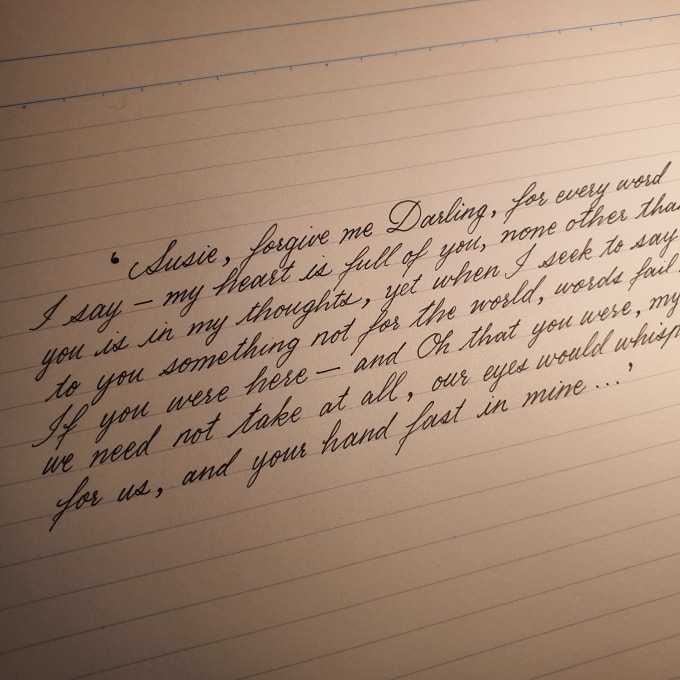 ‘ Susie, forgive me Darling, for every word
I say – my heart is full of you, none other than
you is in my thoughts, yet when I seek to say
to you something not for the world, words fail
If you were here – and Oh that you were, my
we need not take at all, our eyes would whisp
for us, and your hand fast in mine ...’